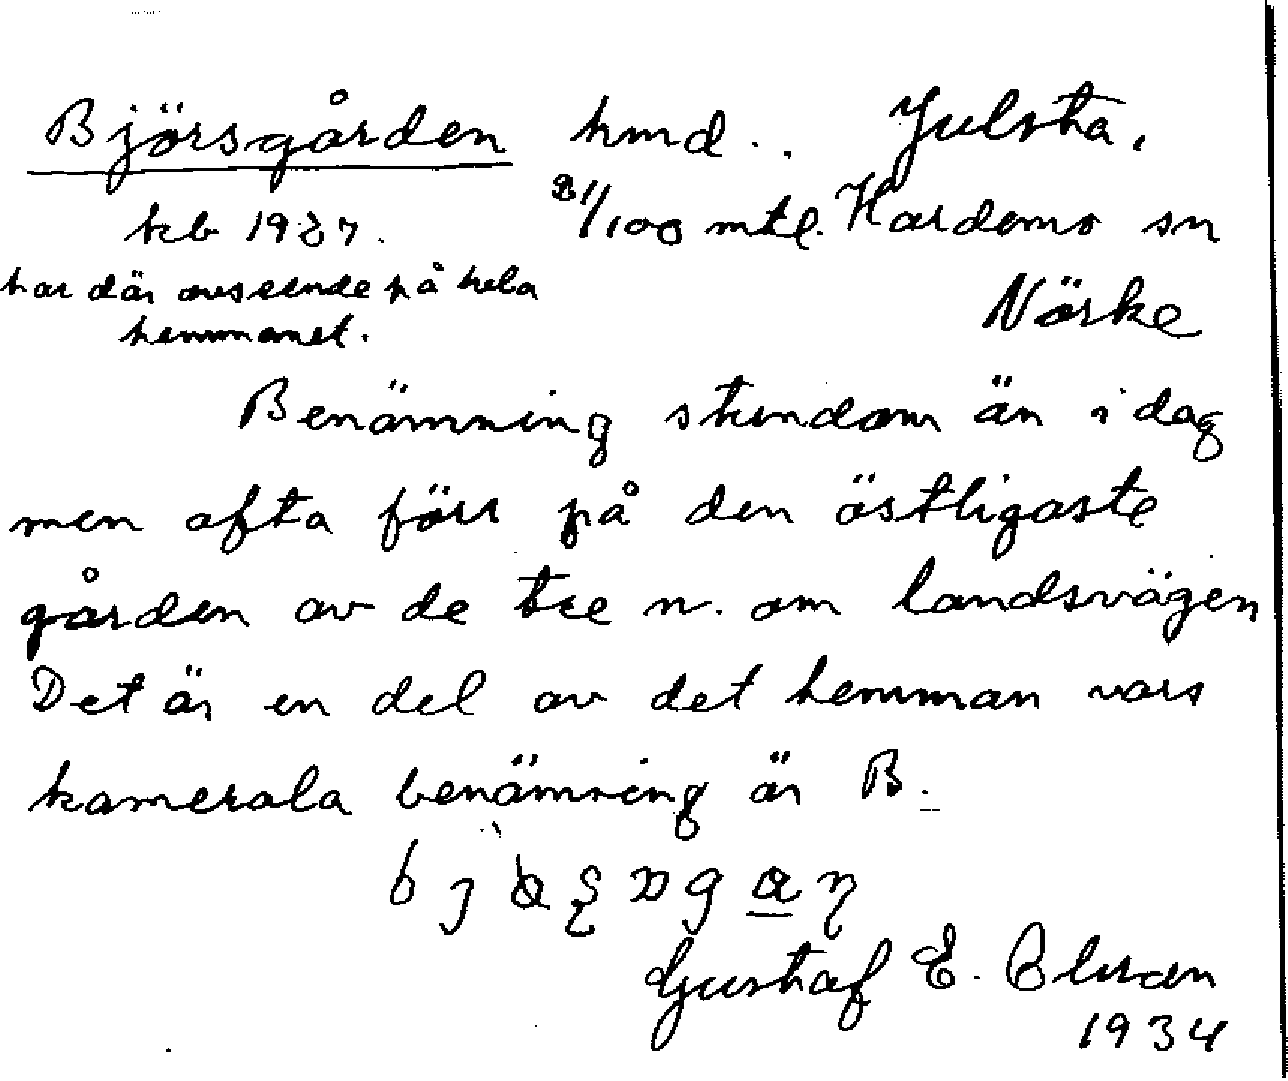 Björsgården hmd.. Julsta,
kb 1937. 21/100 mtl. Hardemo sn
har där avseende på hela Närke
hemmanet.
Benämning stundom än i dag
men ofta förr på den östligaste
gården av de tre n. om landsvägen
Det är en del av det hemman vars
kamerala benämning är B.
Gustaf E.
1934